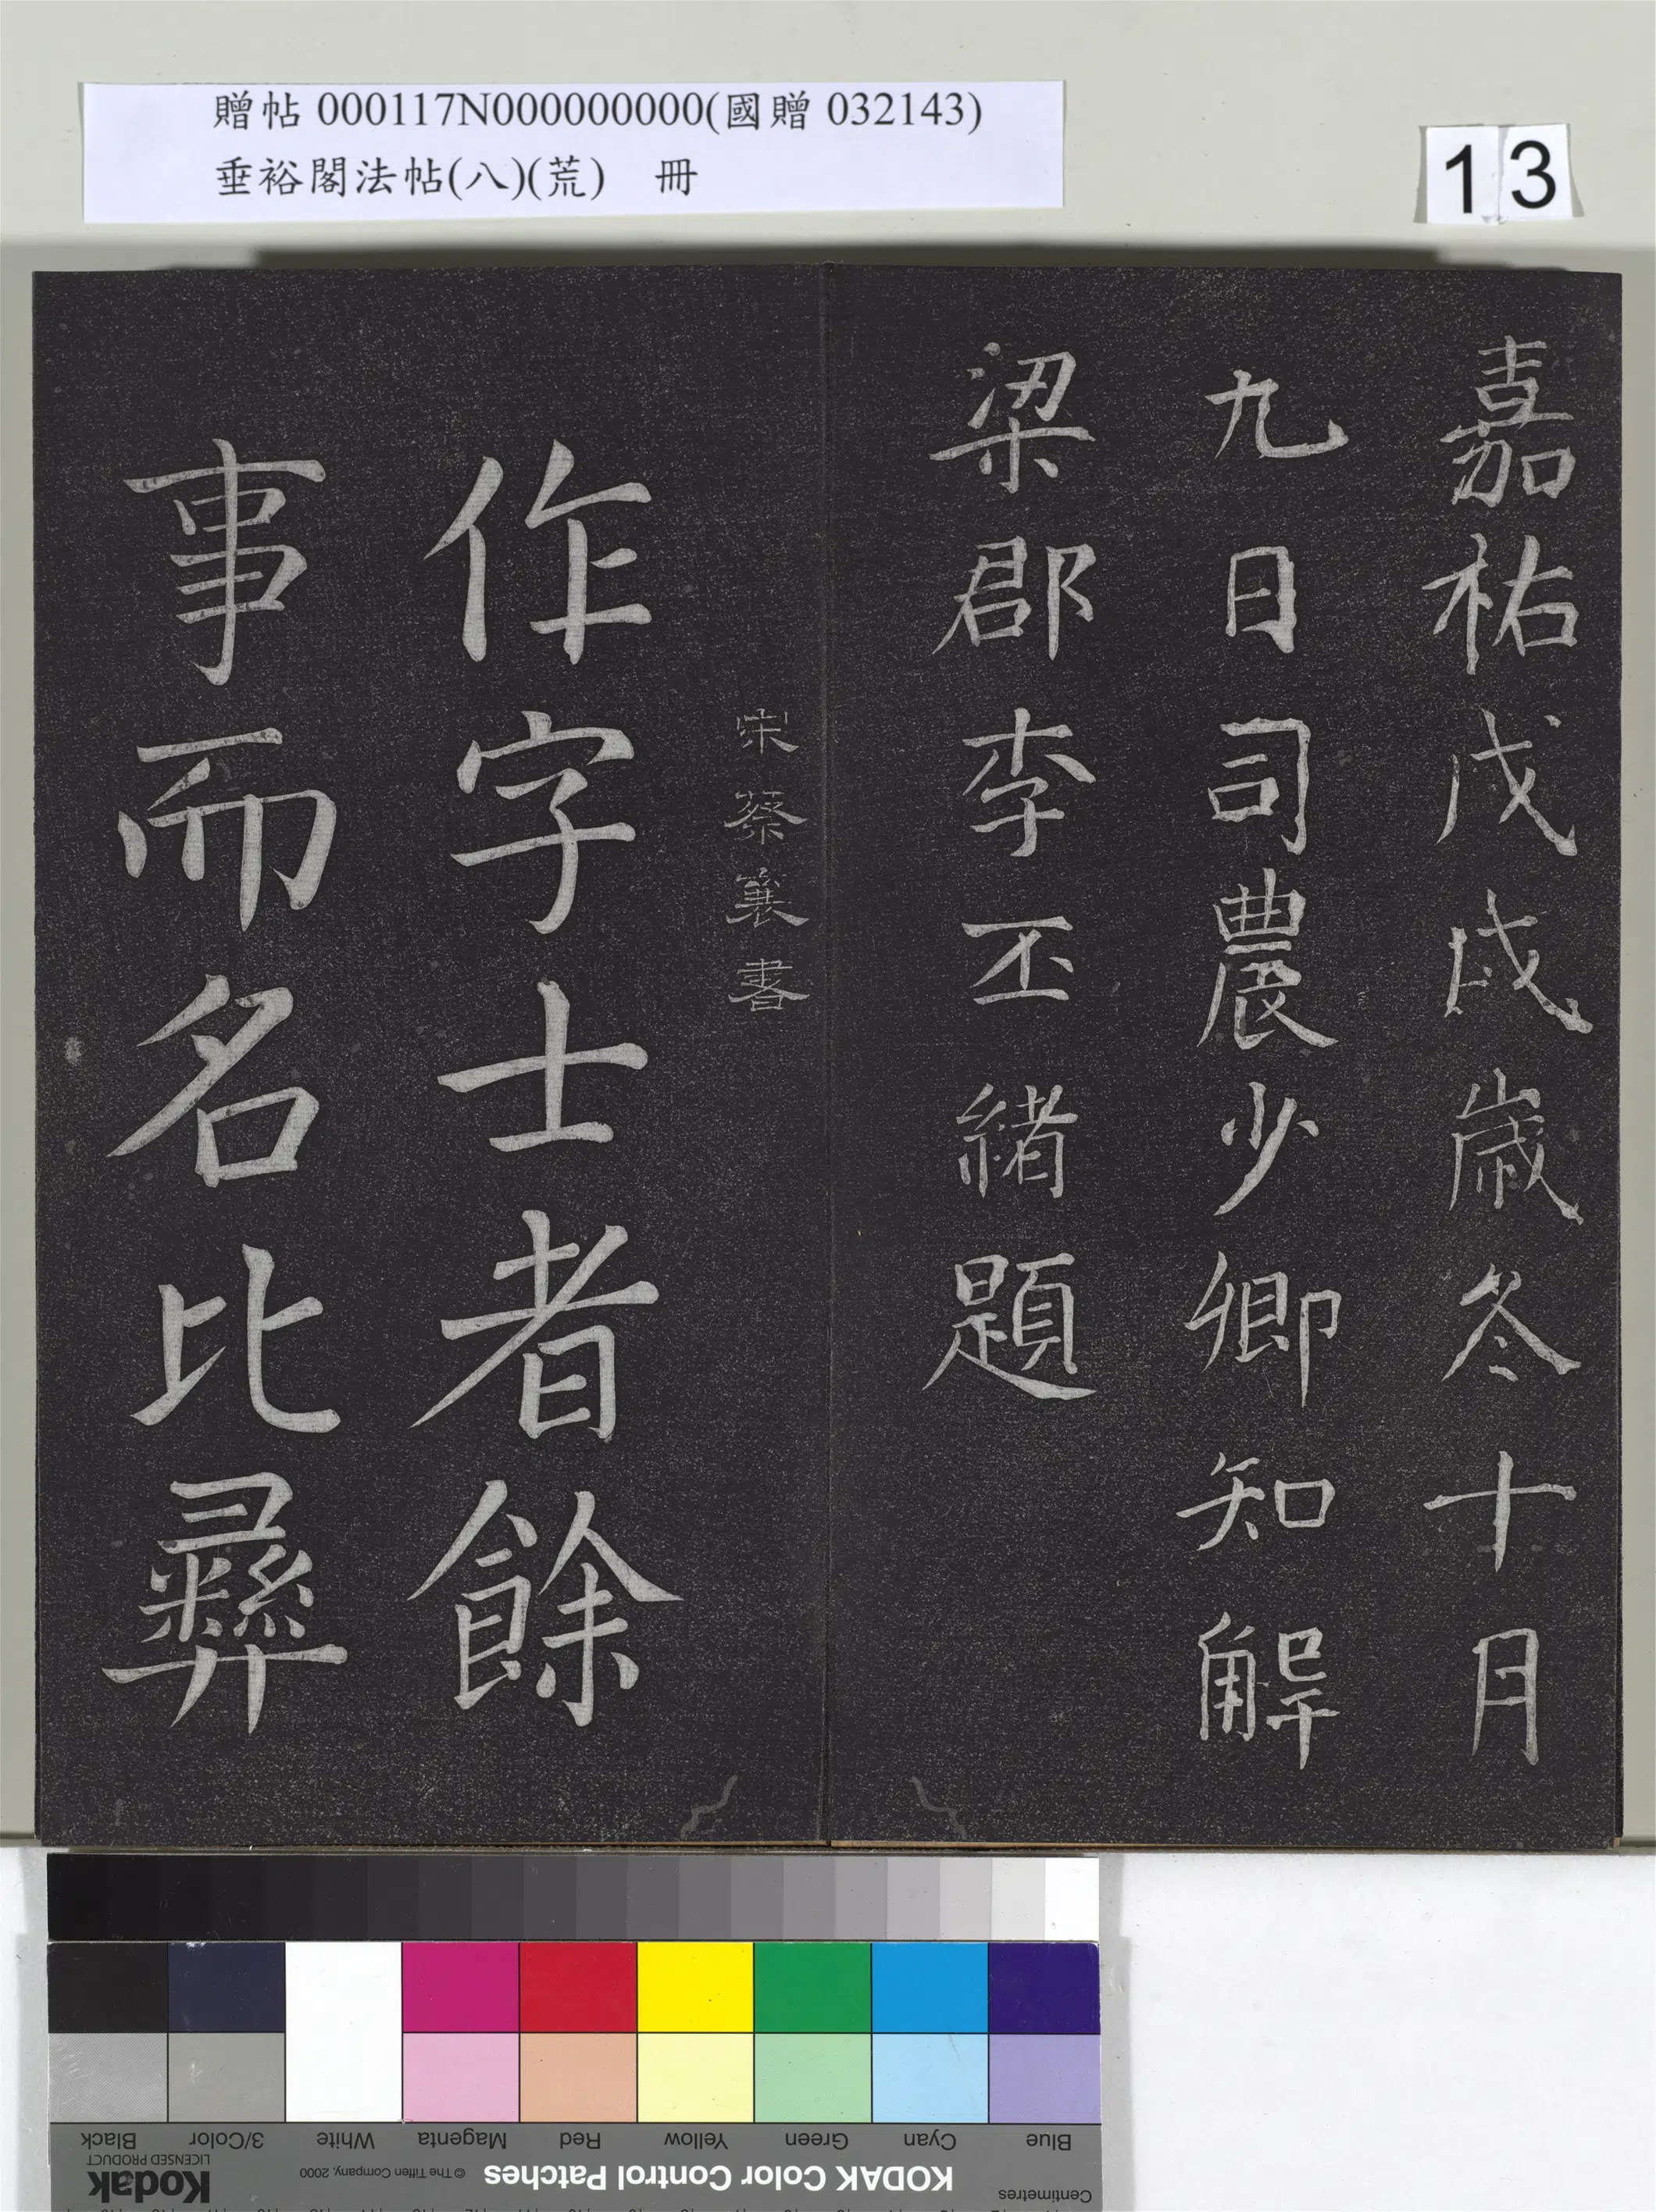 贈帖 000117N000000000(國贈 032143)
垂裕閣法帖(八)(荒) 冊
13
嘉祐戊戌歲冬十月
九日司農少卿知解
梁郡李丕緒題
宋蔡襄書
作字士者餘
事而名比彝
Blue
Cyan
Green
Yellow
Red
Magenta
White
3/Color
Black
Centimetres
KODAK Color Control Patches
© The Tiffen Company, 2000
Kodak
LICENSED PRODUCT